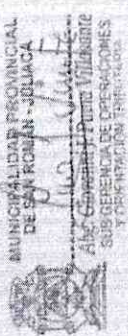 MUNICIPALIDAD PROVINCIAL
DE SAN ROMAN - JULIACA
Abg. Giovana U. Puma Villafuerte
SUB GERENCIA DE OPERACIONES
Y ORIENTACION TRIBUTARIA